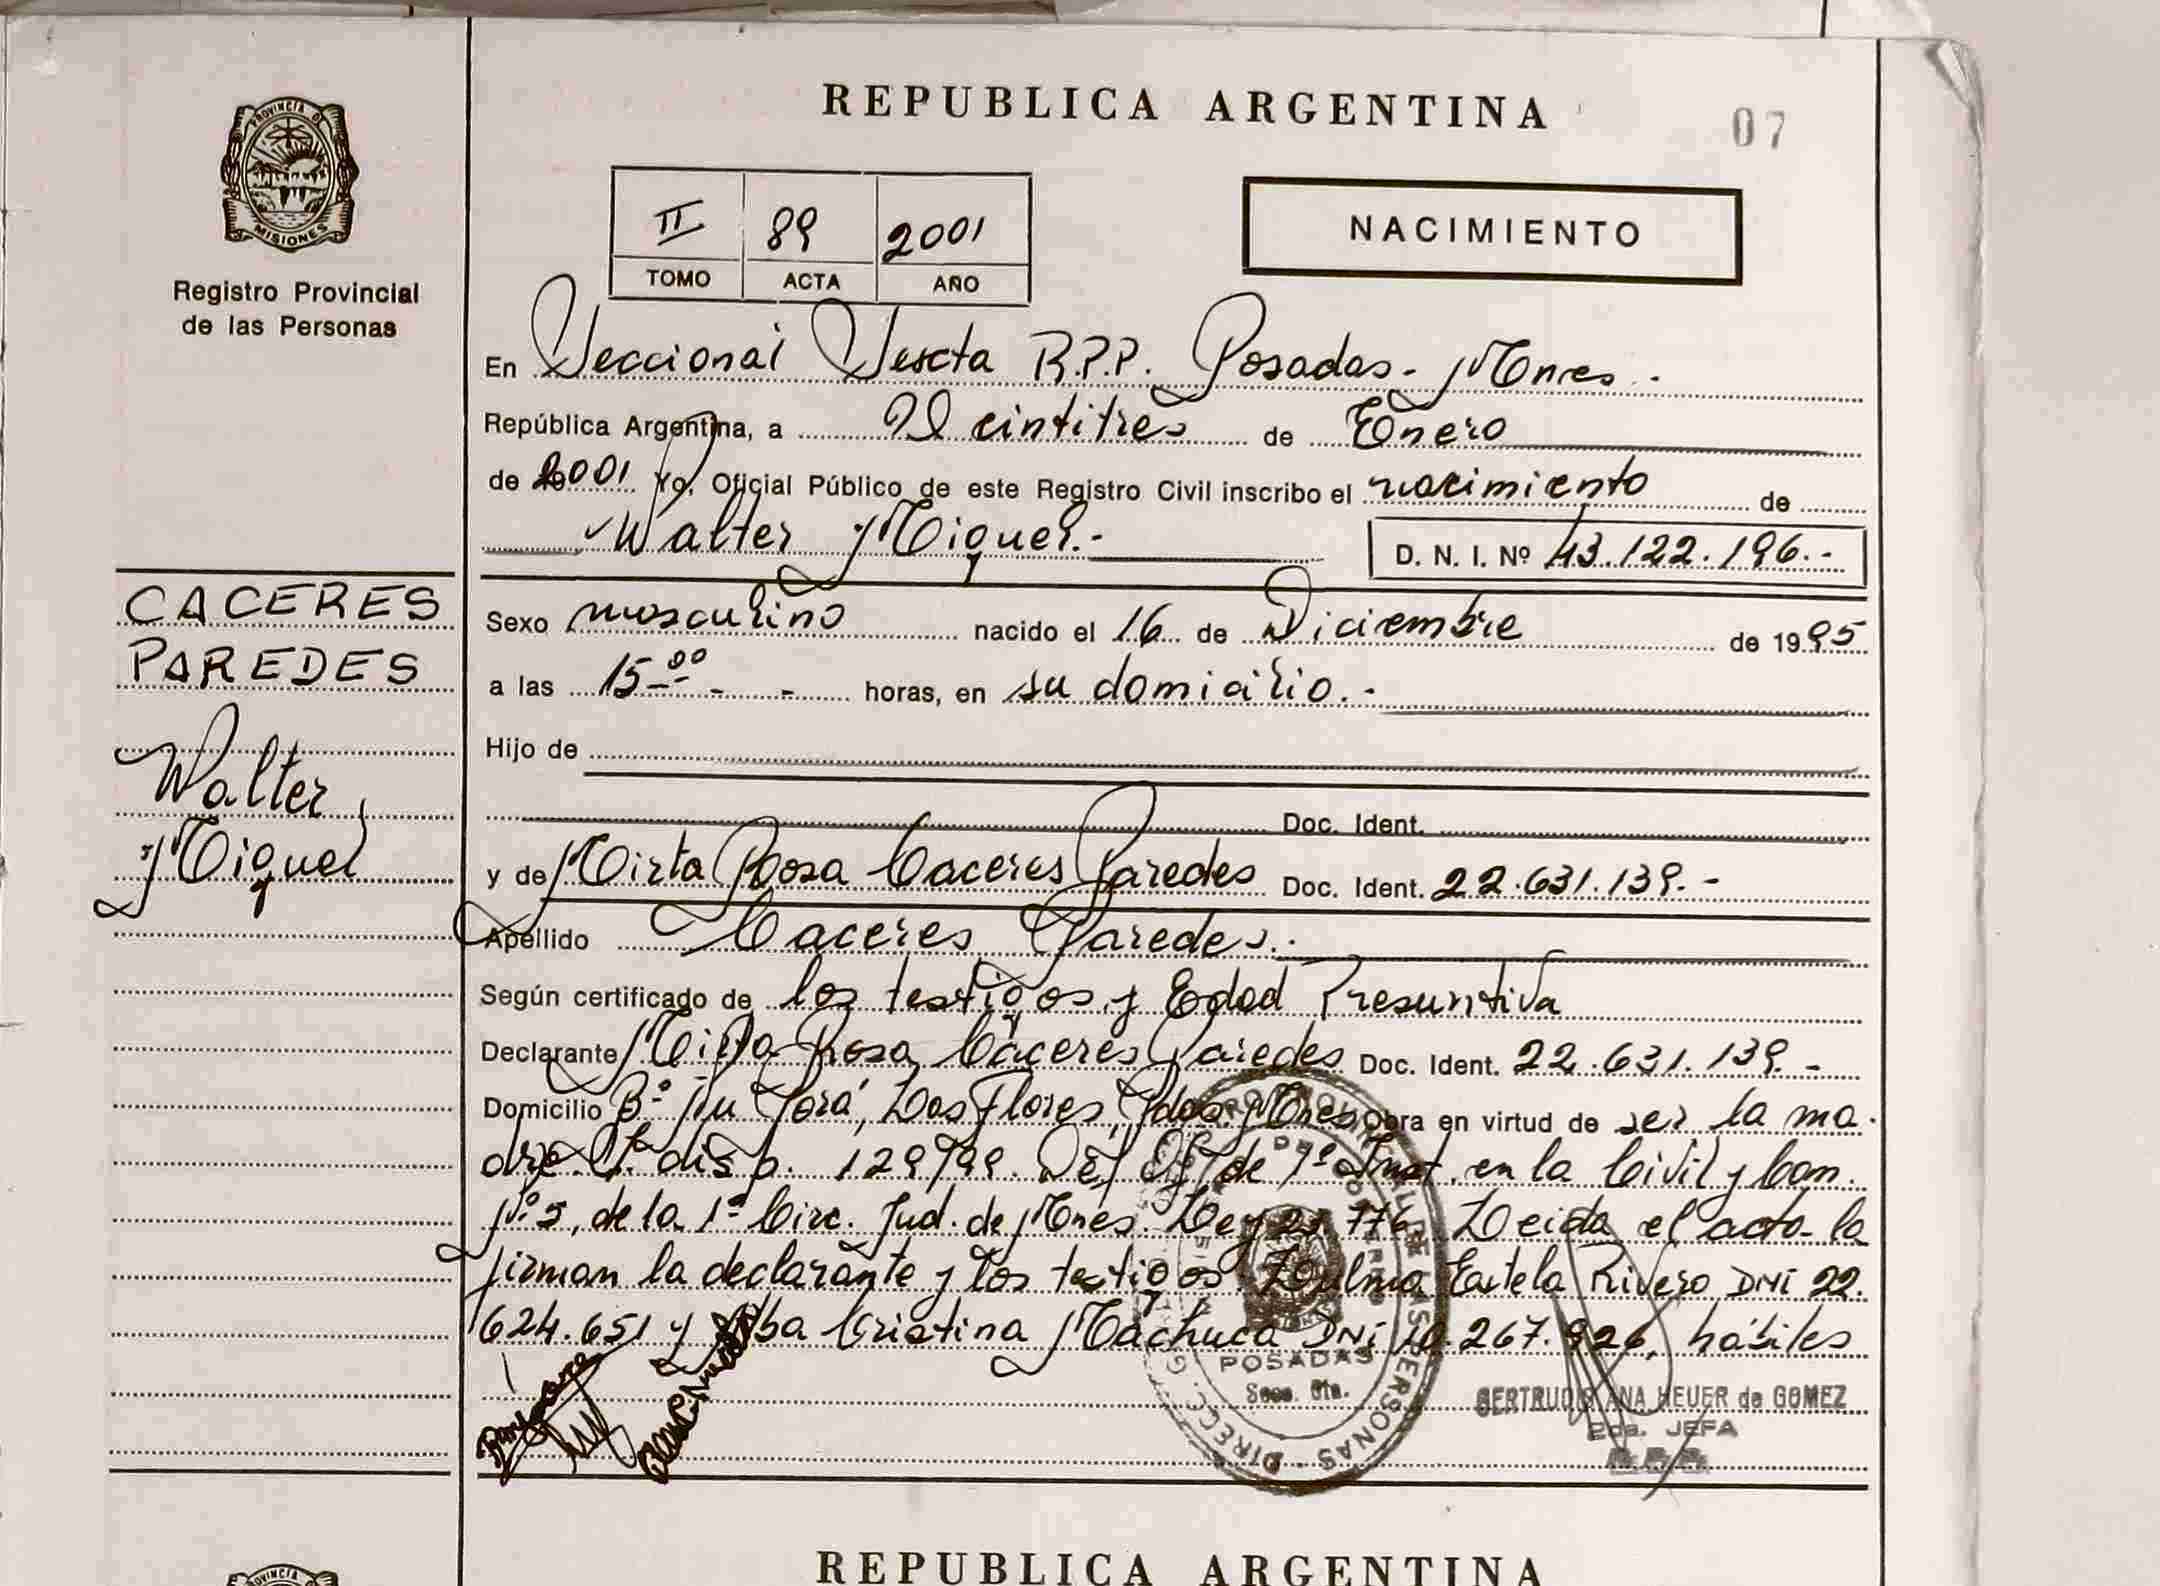 REPUBLICA ARGENTINA
07
PROVINCIA D
MISIONES
Registro Provincial
de las Personas
II 89 2001
TOMO ACTA AÑO
NACIMIENTO
En Seccional Sexta R.P.P. Posadas - Mnes.-
República Argentina, a Veintitres de Enero
de 2001 Yo, Oficial Público de este Registro Civil inscribo el nacimiento de
Walter Miguel.- D. N. I. Nº 43.122.196.-
CACERES
PAREDES
Walter
Miguel
Sexo masculino nacido el 16 de Diciembre de 1995
a las 15-00 - - horas, en su domicilio.-
Hijo de
Doc. Ident.
y de Mirta Rosa Caceres Paredes Doc. Ident. 22.631.139.-
Apellido Caceres Paredes.-
Según certificado de los testigos y Edad Presuntiva
Declarante Mirta Rosa Caceres Paredes Doc. Ident. 22.631.139.-
Domicilio Bº Ñu Porá, Las Flores, Pdas. Mnes Obra en virtud de ser la ma-
dre. disp. 129/99. Def Of de 1º Inst. en lo Civil y Com.
Nº 5, de la 1ª Circ. Jud. de Mnes. Ley 776 Leida el acta la
firman la declarante y los testigos Zulma Estela Rivero DNI 22.
624.651 y Alba Cristina Machuca DNI 267.926, hábiles
POSADAS
Secc. 6ta.
GERTRUDIS ANA HEUER de GOMEZ
2da. JEFA
REPUBLICA ARGENTINA